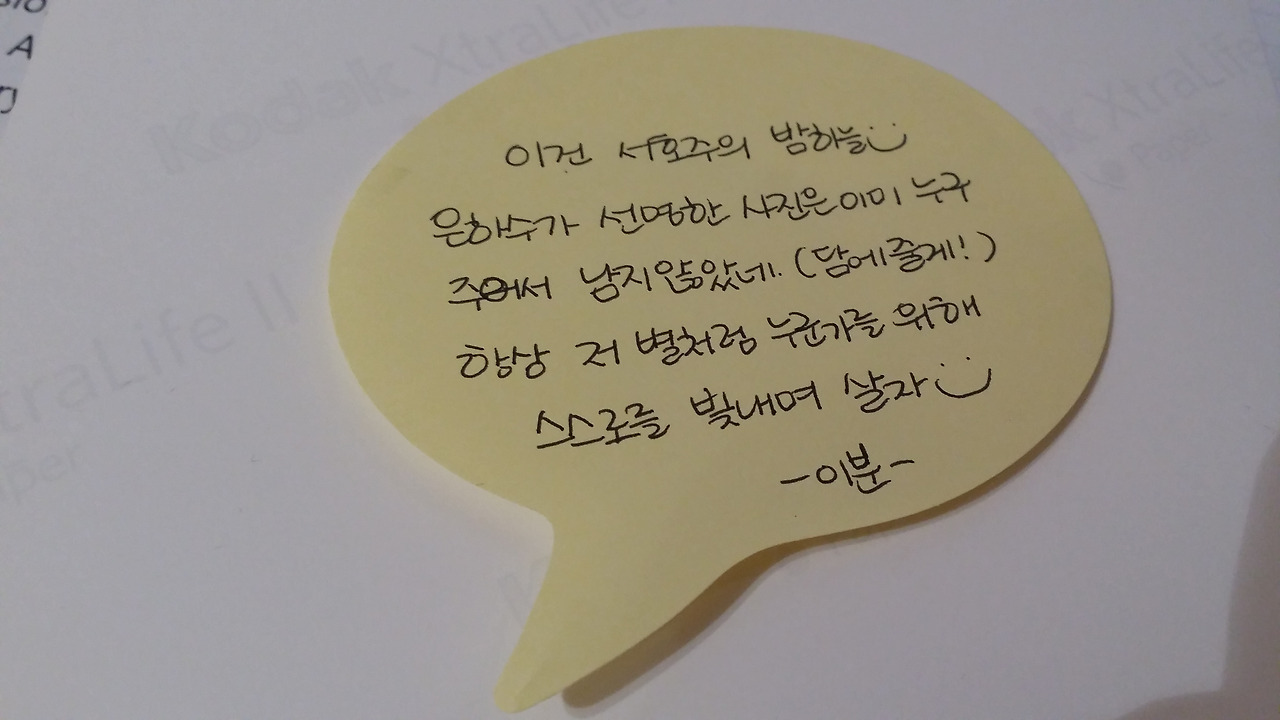 A
Kodak XtraLife
XtraLife
Paper
XtraLife II
aper
이건 서호주의 밤하늘
은하수가 선명한 사진은 이미 누구
주어서 남지 않았네. (담에 줄게!)
항상 저 별처럼 누군가를 위해
스스로를 빛내며 살자
-이분-